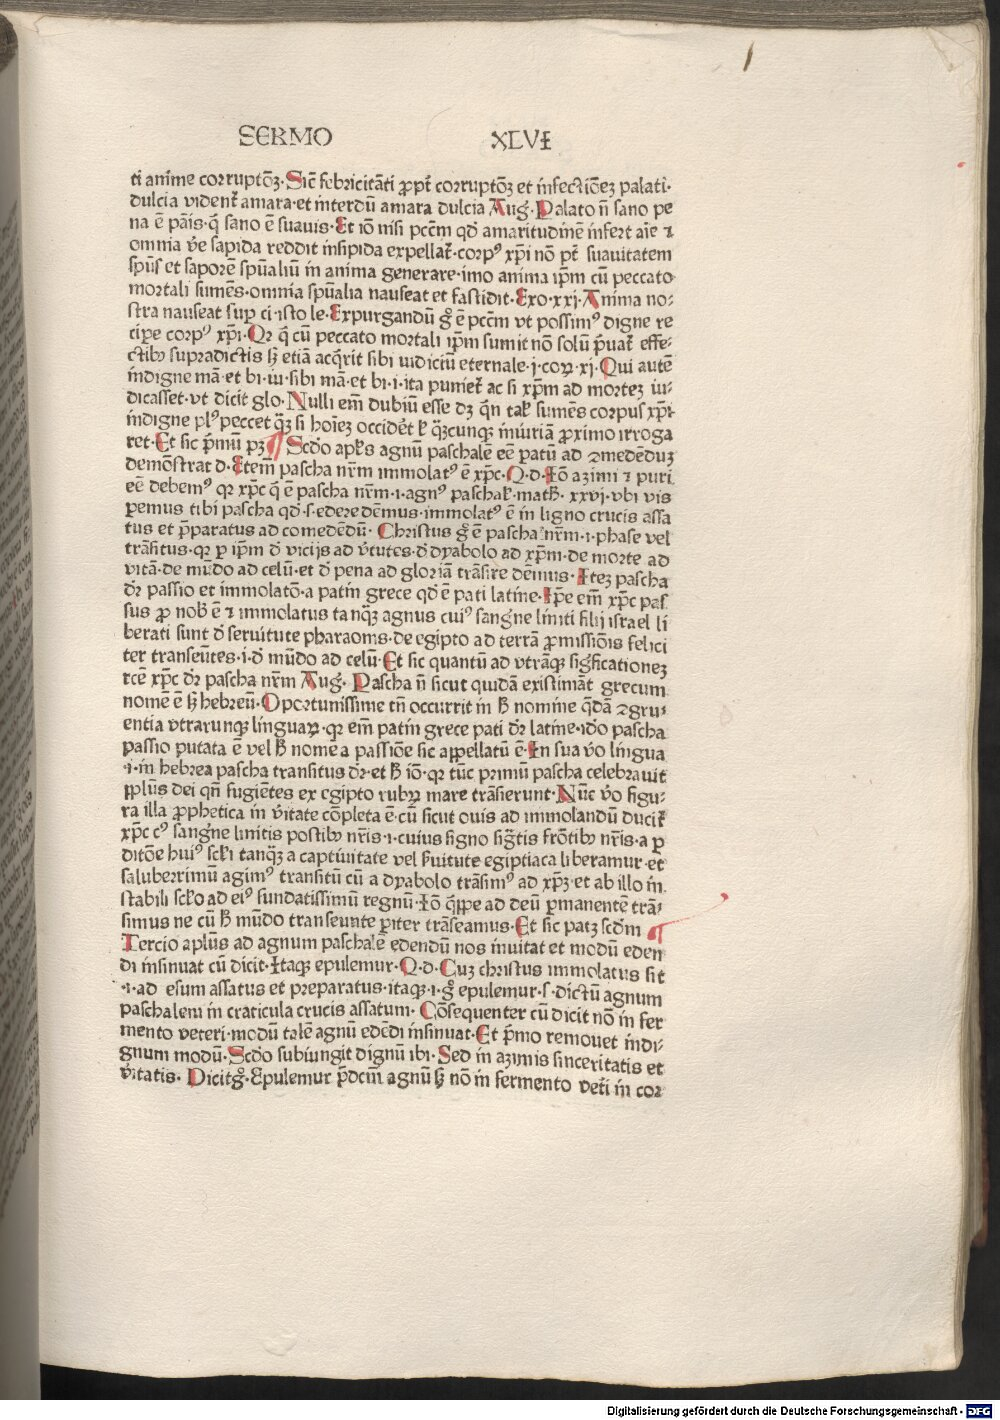 SERMO XLVI
ti anime corruptōꝫ·Sic̄ febricitāti ꝓpt̄ corruptōꝫ et infectiōeꝫ palati·
dulcia vident̄ amara·et interdū amara dulcia Aug̕. Palato n̄ sano pe
na ē pāis·q̄ sano ē suauis·Et iō nisi pccm̄ qd̄ amaritudinē infert aīe ⁊
omnia v̄e sapida reddit insipida expellat̄·corpꝰ xp̄i nō pt̄ suauitatem
spūs et saporē spūaliū in anima generare·imo anima ip̄m cū peccato
mortali sumēs·omnia spūalia nauseat et fastidit·Exo·xxj·Anima no⸗
stra nauseat suꝑ ci·isto le·Expurgandū g̊ ē pccm̄ vt possimꝰ digne re
cipe corpꝰ xp̄i·Qꝛ q̄ cū peccato mortali ip̄m sumit nō solū p̄uat̄ effe⸗
ctibꝰ supradictis sꝫ etiā acq̄rit sibi iudiciū eternale·j·coꝝ·xj·Qui autē
indigne mā·et bi·iu·sibi mā·et bi·i·ita puniet̄ ac si xp̄m ad morteꝫ iu⸗
dicasset·vt dicit glo·Nulli em̄ dubiū esse dꝫ q̄n tal̄ sumēs corpus xp̄i·
indigne plꝰ peccet q̄ꝫ si hoīeꝫ occidēt l̄ q̄ꝫcunqꝫ iniuriā ꝓximo irroga
ret·Et sic p̄mū pꝫ ¶ Scd̄o apl̄s agnū paschalē eē patū ad ꝯmedēduꝫ
demōstrat d·Etem̄ pascha nr̄m immolatꝰ ē xp̄c·Q·d·Iō azimi ⁊ puri
eē debemꝰ qꝛ xp̄c q̄ ē pascha nr̄m·i·agnꝰ paschal̄·math̄·xxvj·vbi vis
pemus tibi pascha qd̄·s·edere dēmus·immolatꝰ ē in ligno crucis assa
tus et p̄paratus ad comedēdū· Christus g̊ ē pascha nr̄m·i·phase vel
trāsitus·qꝛ ꝑ ip̄m d̄ vicijs ad v̄tutes·d̄ dyabolo ad xp̄m·de morte ad
vitā·de mūdo ad celū·et d̄ pena ad gloriā trāsire dēmus·Iteꝫ pascha
dr̄ passio et immolatō·a patin grece qd̄ ē pati latine·Ip̄e em̄ xp̄c pas
sus ꝓ nob̄ ē ⁊ immolatus tanq̄ꝫ agnus cuiꝰ sangne liniti filij israel li
berati sunt d̄ seruitute pharaonis·de egipto ad terrā ꝓmissiōis felici
ter transeūtes·i·d̄ mūdo ad celū·Et sic quantū ad vtrāqꝫ sigficationeꝫ
rcē xp̄c dr̄ pascha nr̄m Aug̕· Pascha n̄ sicut quidā existimāt grecum
nomē ē sꝫ hebreū·Oportunissime tn̄ occurrit in h̄ nomine q̄dā ꝯgru⸗
entia vtrarunqꝫ linguaꝝ·qꝛ em̄ patin grece pati dr̄ latine·ido pascha
passio putata ē vel h̄ nome a passiōe sic appellatū ē·In sua v̄o lingua
·i·in hebrea pascha transitus dr̄·et h̄ iō·qꝛ tūc primū pascha celebrauit
ppl̄us dei qn̄ fugiētes ex egipto rubꝝ mare trāsierunt·Nūc v̄o figu⸗
ra illa ꝓphetica in v̄itate cōpleta ē·cū sicut ouis ad immolandū ducit̄
xp̄c cꝰ sangne linitis postibꝰ nr̄is·i·cuius signo sig̃tis frōtibꝰ nr̄is·a ꝑ
ditōe huiꝰ scl̄i tanq̄ꝫ a captiuitate vel s̄uitute egiptiaca liberamur·et
saluberrimū agimꝰ transitū cū a dyabolo trāsimꝰ ad xp̄ꝫ·et ab illo in
stabili scl̄o ad eiꝰ fundatissimū regnū·Iō q̄ppe ad deū ꝑmanentē trā⸗
simus ne cū h̄ mūdo transeunte ꝑiter trāseamus·Et sic patꝫ scd̄m ¶
Tercio aplūs ad agnum paschalē edendū nos inuitat et modū eden
di insinuat cū dicit·Itaqꝫ epulemur·Q·d·Cuꝫ christus immolatus sit
·i·ad esum assatus et preparatus·itaqꝫ·i·g̊ epulemur·s·dictū agnum
paschalem in craticula crucis assatum· Cōsequenter cū dicit nō in fer
mento veteri·modū talē agnū edēdi insinuat·Et p̄mo remouet indi⸗
gnum modū·Scd̄o subiungit dignū ibi·Sed in azimis sinceritatis et
v̄itatis· Dicit g̊·Epulemur p̄dcm̄ agnū sꝫ nō in fermento vet̄i in cor
Digitalisierung gefördert durch die Deutsche Forschungsgemeinschaft - DFG